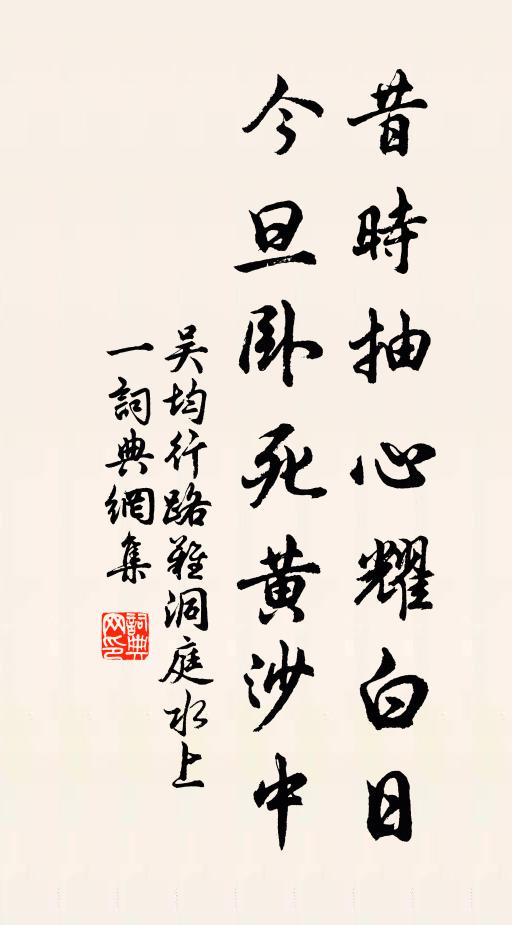 昔時抽心耀白日
今旦卧死黄沙中
吴均行路難洞庭水上
一詞典網集
詞典
网印